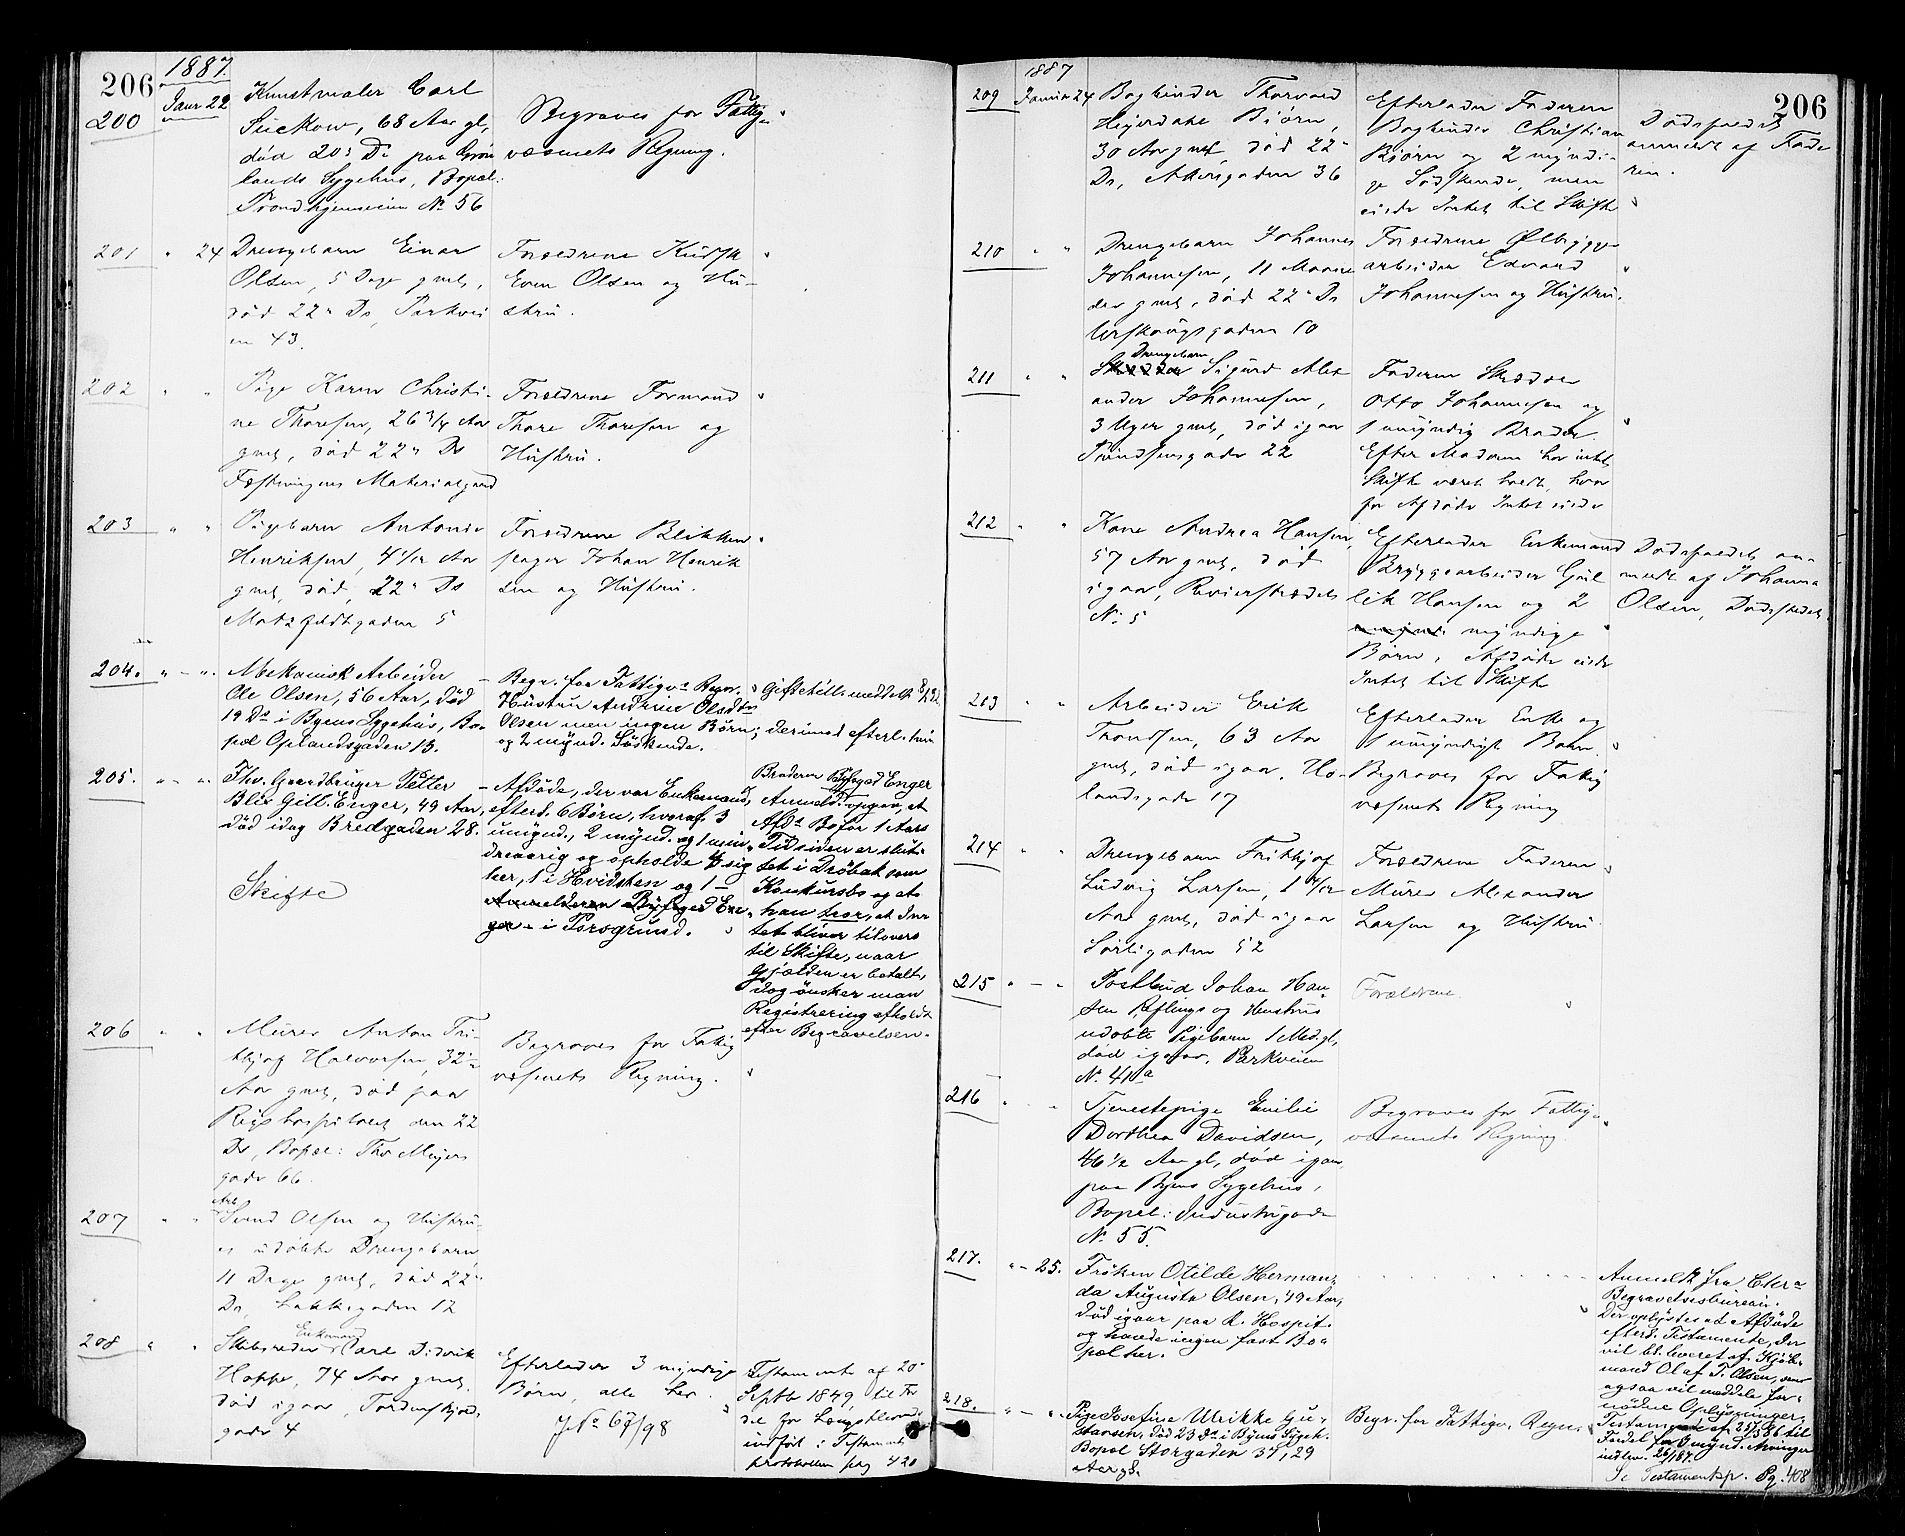 206
1887.
200
Janr 22
Kunstmaler Carl
Suckow, 68 Aar gl,
død 20s Ds paa Grøn
lands Sygehus, Bopæl:
Trondhjemsveien No 56
Begraves for Fattig-
væsenets Regning.
201
" 24
Drengebarn Einar
Olsen, 5 Dage gml,
død 22n Ds, Parkvei
en 43.
Forældrene Kudsk
Even Olsen og Hu-
stru.
202
" "
Pige Karen Christi-
ne Thoresen, 26 3/4 Aar
gml, død 22n Ds
Fæstningens Materialgaard
Forældrene Formand
Thore Thoresen og
Hustru.
203
" "
Pigebarn Antonie
Henriksen, 4 1/12 Aar
gml, død, 22n Ds
Motzfeldtgaden 5
Forældrene Blikken
slager Johan Henrik
sen og Hustru.
204.
" - ".
Mekanisk Arbeider
Ole Olsen, 56 Aar, død
19 Ds i Byens Sygehus, Bo-
pæl Oplandsgaden 13.
Begr. for Fattigvs Regn.
Hustru Andrine Olsdtr
Olsen men ingen Børn; derimod efterl. hun
og 2 mynd. Sødskende.
205.
" - "
Fhv. Gaardbruger Petter
Blix Gill. Enger, 49 Aar,
død idag Bredgaden 28.
Skifte
Afdøde, der var Enkemand,
efterl. 6 Børn, hvoraf 3
umynd., 2 mynd. og 1 min-
dreaarig og opholde 4 sig
her, 1 i Hvidsten og 1 -
Anmelderen Byfoged En-
ger - i Porsgrund.
Broderen Byfoged Enger
Anmeld. opgav, at
Afds Bo for 1 Aars
Tid siden er slut-
tet i Drøbak som
Konkursbo og at
han tror, at In-
tet bliver tilovers
til Skifte, naar
Gjælden er betalt,
dog ønsker man
Registrering afholdt
efter Begravelsen.
206
" "
Murer Anton Fri-
thjof Halvorsen, 32
Aar gml, død paa
Rigshospitalet den 22
Ds, Bopæl: Thv Meyers
gade 66.
Begraves for Fattig
væsenets Regning.
207
" "
Arb
Svend Olsen og Hustru-
es udøbte Drengebarn
11 Dage gml, død 22n
Ds, Lakkegaden 12
208
" "
Enkemand
Skibsreder Carl Diderik
Hoppe, 74 Aar gml,
død igaar, Tordenskjolds
gade 4
Efterlader 3 myndige
Børn, alle her.
J No 67/98
Testamente af 20de
Septbr 1849, til For
del for Længstlevende
indført i Testament
protokollen pag 420
206
1887
209
Januar 24
Bogbinder Thorvald
Hejerdahl Bjørn,
30 Aar gml, død 22n
Ds, Akersgaden 36
Efterlader Faderen
Bogbinder Christian
Bjørn og 2 myndi-
ge Sødskende, men
eiede Intet til Skifte
Dødsfaldet
anmeldt af Fade
ren.
210
" "
Drengebarn Johannes
Johannesen, 11 Maane
der gml, død 22n Ds
Forældrene Ølbrygge-
arbeider Edvard
Johannesen og Hustru.
211
" "
Drengebarn
Skrædder Sigurd Alex
ander Johannesen,
3 Uger gml, død igaar
Faderen Skrædder
Otto Johannesen og
1 umyndig Broder.
Efter Moderen har intet
Skifte været holdt, hvor
for Afdøde Intet eiede
212
" "
Kone Andrea Hansen,
57 Aar gml, død
igaar, Revierstrædet
No 5
Efterlader Enkemand
Bryggearbeider Gul
lik Hansen og 2
umynd. myndige
Børn, Afdøde eiede
Intet til Skifte
Dødsfaldet an-
meldt af Johanna
Olsen, Dødsstedet
213
" "
Arbeider Erik
Trondsen, 63 Aar
gml, død igaar, Ho-
landsgade 17
Efterlader Enke og
1 umyndigt Barn.
Begraves for Fattig
væsenets Regning
214
" "
Drengebarn Frithjof
Ludvig Larsen, 1 4/12
Aar gml, død igaar
Sørligaden 52
Forældrene Faderen
Murer Alexander
Larsen og Hustru.
215
" - "
Postbud Johan Han
sen Reflings og Hustrus
udøbte Pigebarn 1 Md. gl,
død igaar, Parkveien
No 41a
Forældrene.
216
" "
Tjenestepige Emilie
Dorthea Davidsen,
46 1/2 Aar gl, død igaar
paa Byens Sygehus,
Bopæl: Industrigade
No 55.
Begraves for Fattig-
væsenets Regning.
217.
" - 25.
Frøken Otilde Herman-
da Augusta Olsen, 49 Aar,
død igaar paa R. Hospit.
og havde ingen fast Bo-
pæl her.
Anmeldt fra
Begravelsesbureau.
Der oplystes at Afdøde
efterl. Testamente, der
vil bl. leveret af Kjøb-
mand Olaf T. Olsen, som
ogsaa vil meddele for-
nødne Oplysninger.
Testament af 25/5 86 til
Fordel for 3 mynd. Arvinger
indlev. 26/1 87.
Se Testamentsp. Pg. 408
218.
" - ".
Pige Josefine Ulrikke Gu-
stavsen, død 23 Ds i Byens Sygeh.
Bopæl Storgaden 37, 29
Aar gl.
Begr. for Fattigv. Regn.